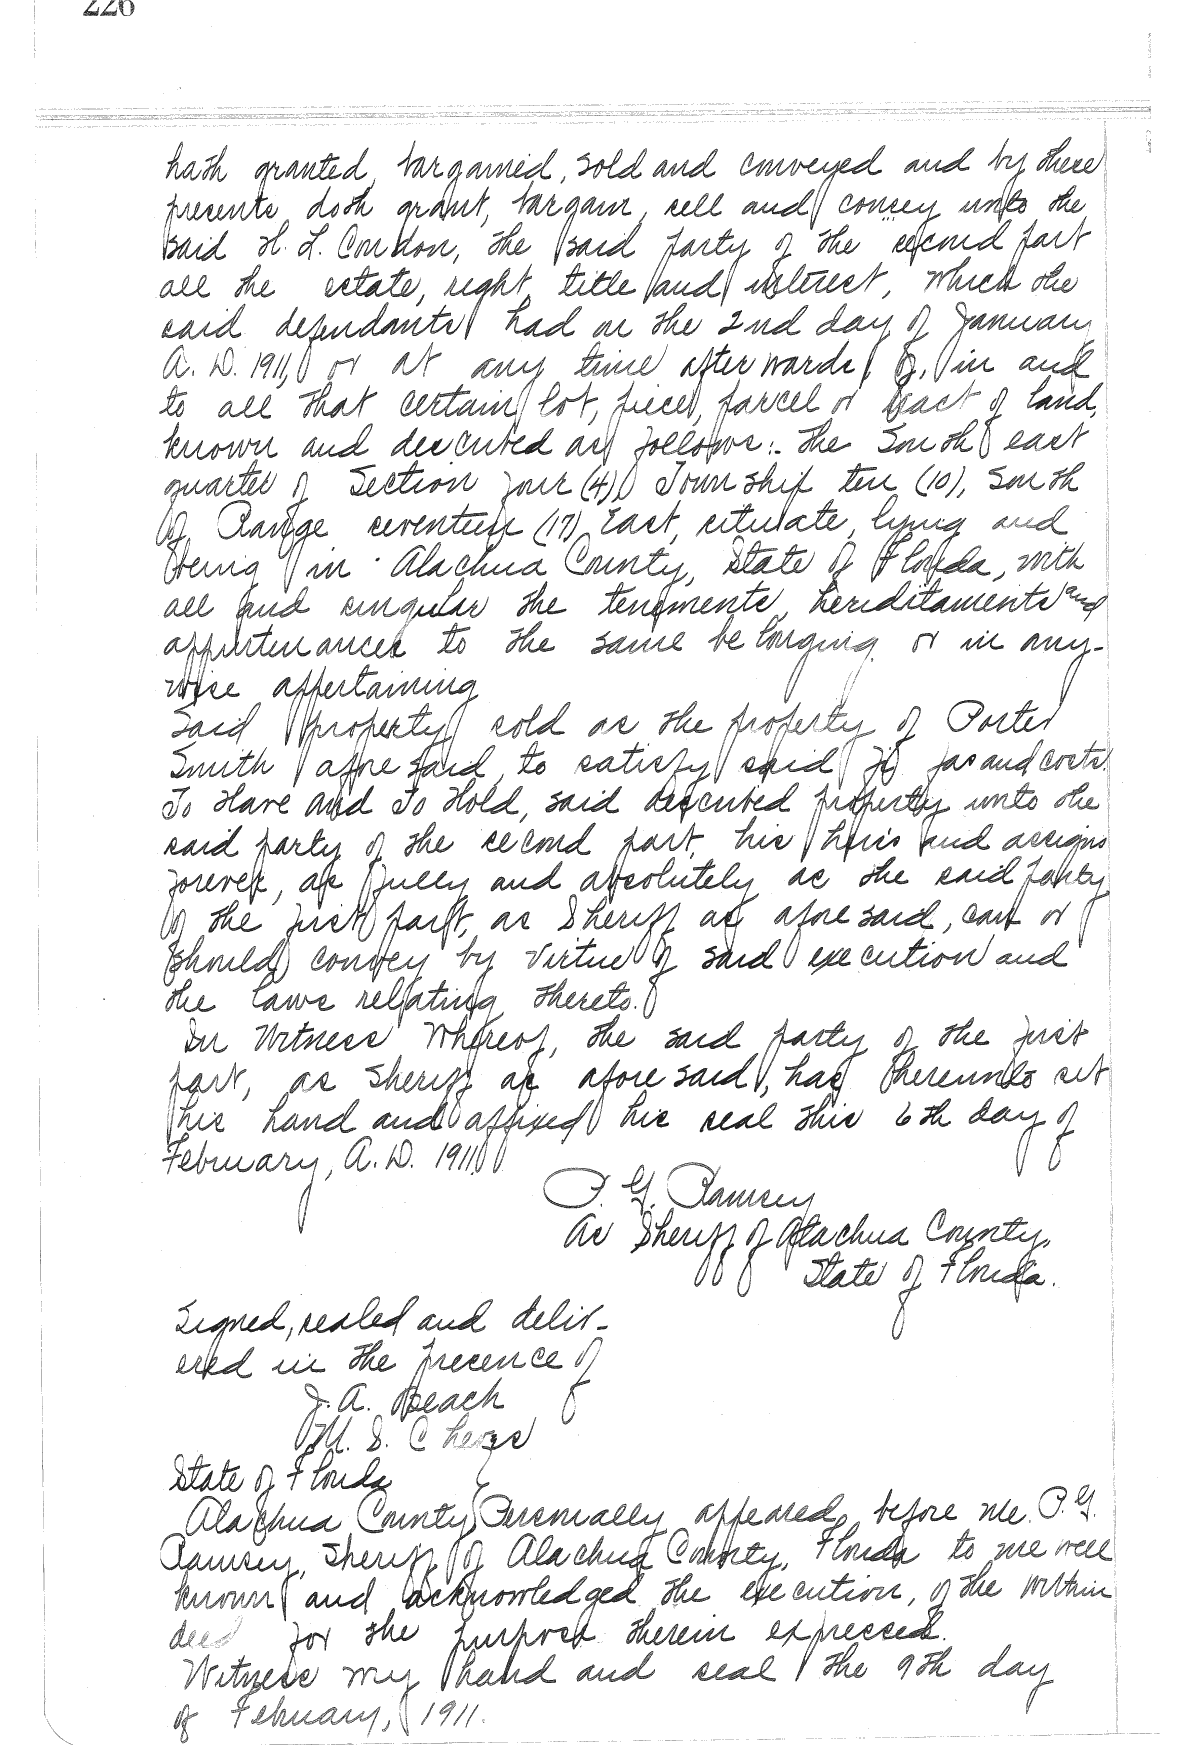 226
hath granted, bargained, sold and conveyed and by these
presents doth grant, bargain, sell and convey unto the
said H. L. Condon, the said party of the second part
all the estate, right, title and interest, which the
said defendants had on the 2nd day of January
A. D. 1911, or at any time afterwards, of, in and
to all that certain lot, piece, parcel or tract of land,
known and described as follows:- The South east
quarter of Section four (4), Township ten (10), South
of Range seventeen (17) East, situate, lying and
being in Alachua County, State of Florida, with
all and singular the tenements, hereditaments and
appurtenances to the same belonging or in any-
wise appertaining
Said property sold as the property of Porter
Smith aforesaid, to satisfy said fi fas and costs.
To Have and To Hold, said described property unto the
said party of the second part, his heirs and assigns
forever, as fully and absolutely as the said party
of the first part, as Sheriff as aforesaid, can or
should convey by virtue of said execution and
the laws relating thereto.
In Witness Whereof, the said party of the first
part, as Sheriff as aforesaid, has hereunto set
his hand and affixed his seal this 6th day of
February, A. D. 1911.
P. G. Ramsey
As Sheriff of Alachua County,
State of Florida.
Signed, sealed and deliv-
ered in the presence of
J. A. Beach
M. S. Cheves
State of Florida
Alachua County Personally appeared before me P. G.
Ramsey, Sheriff of Alachua County, Florida to me well
known and acknowledged the execution, of the within
deed for the purpose therein expressed.
Witness my hand and seal the 9th day
of February, 1911.